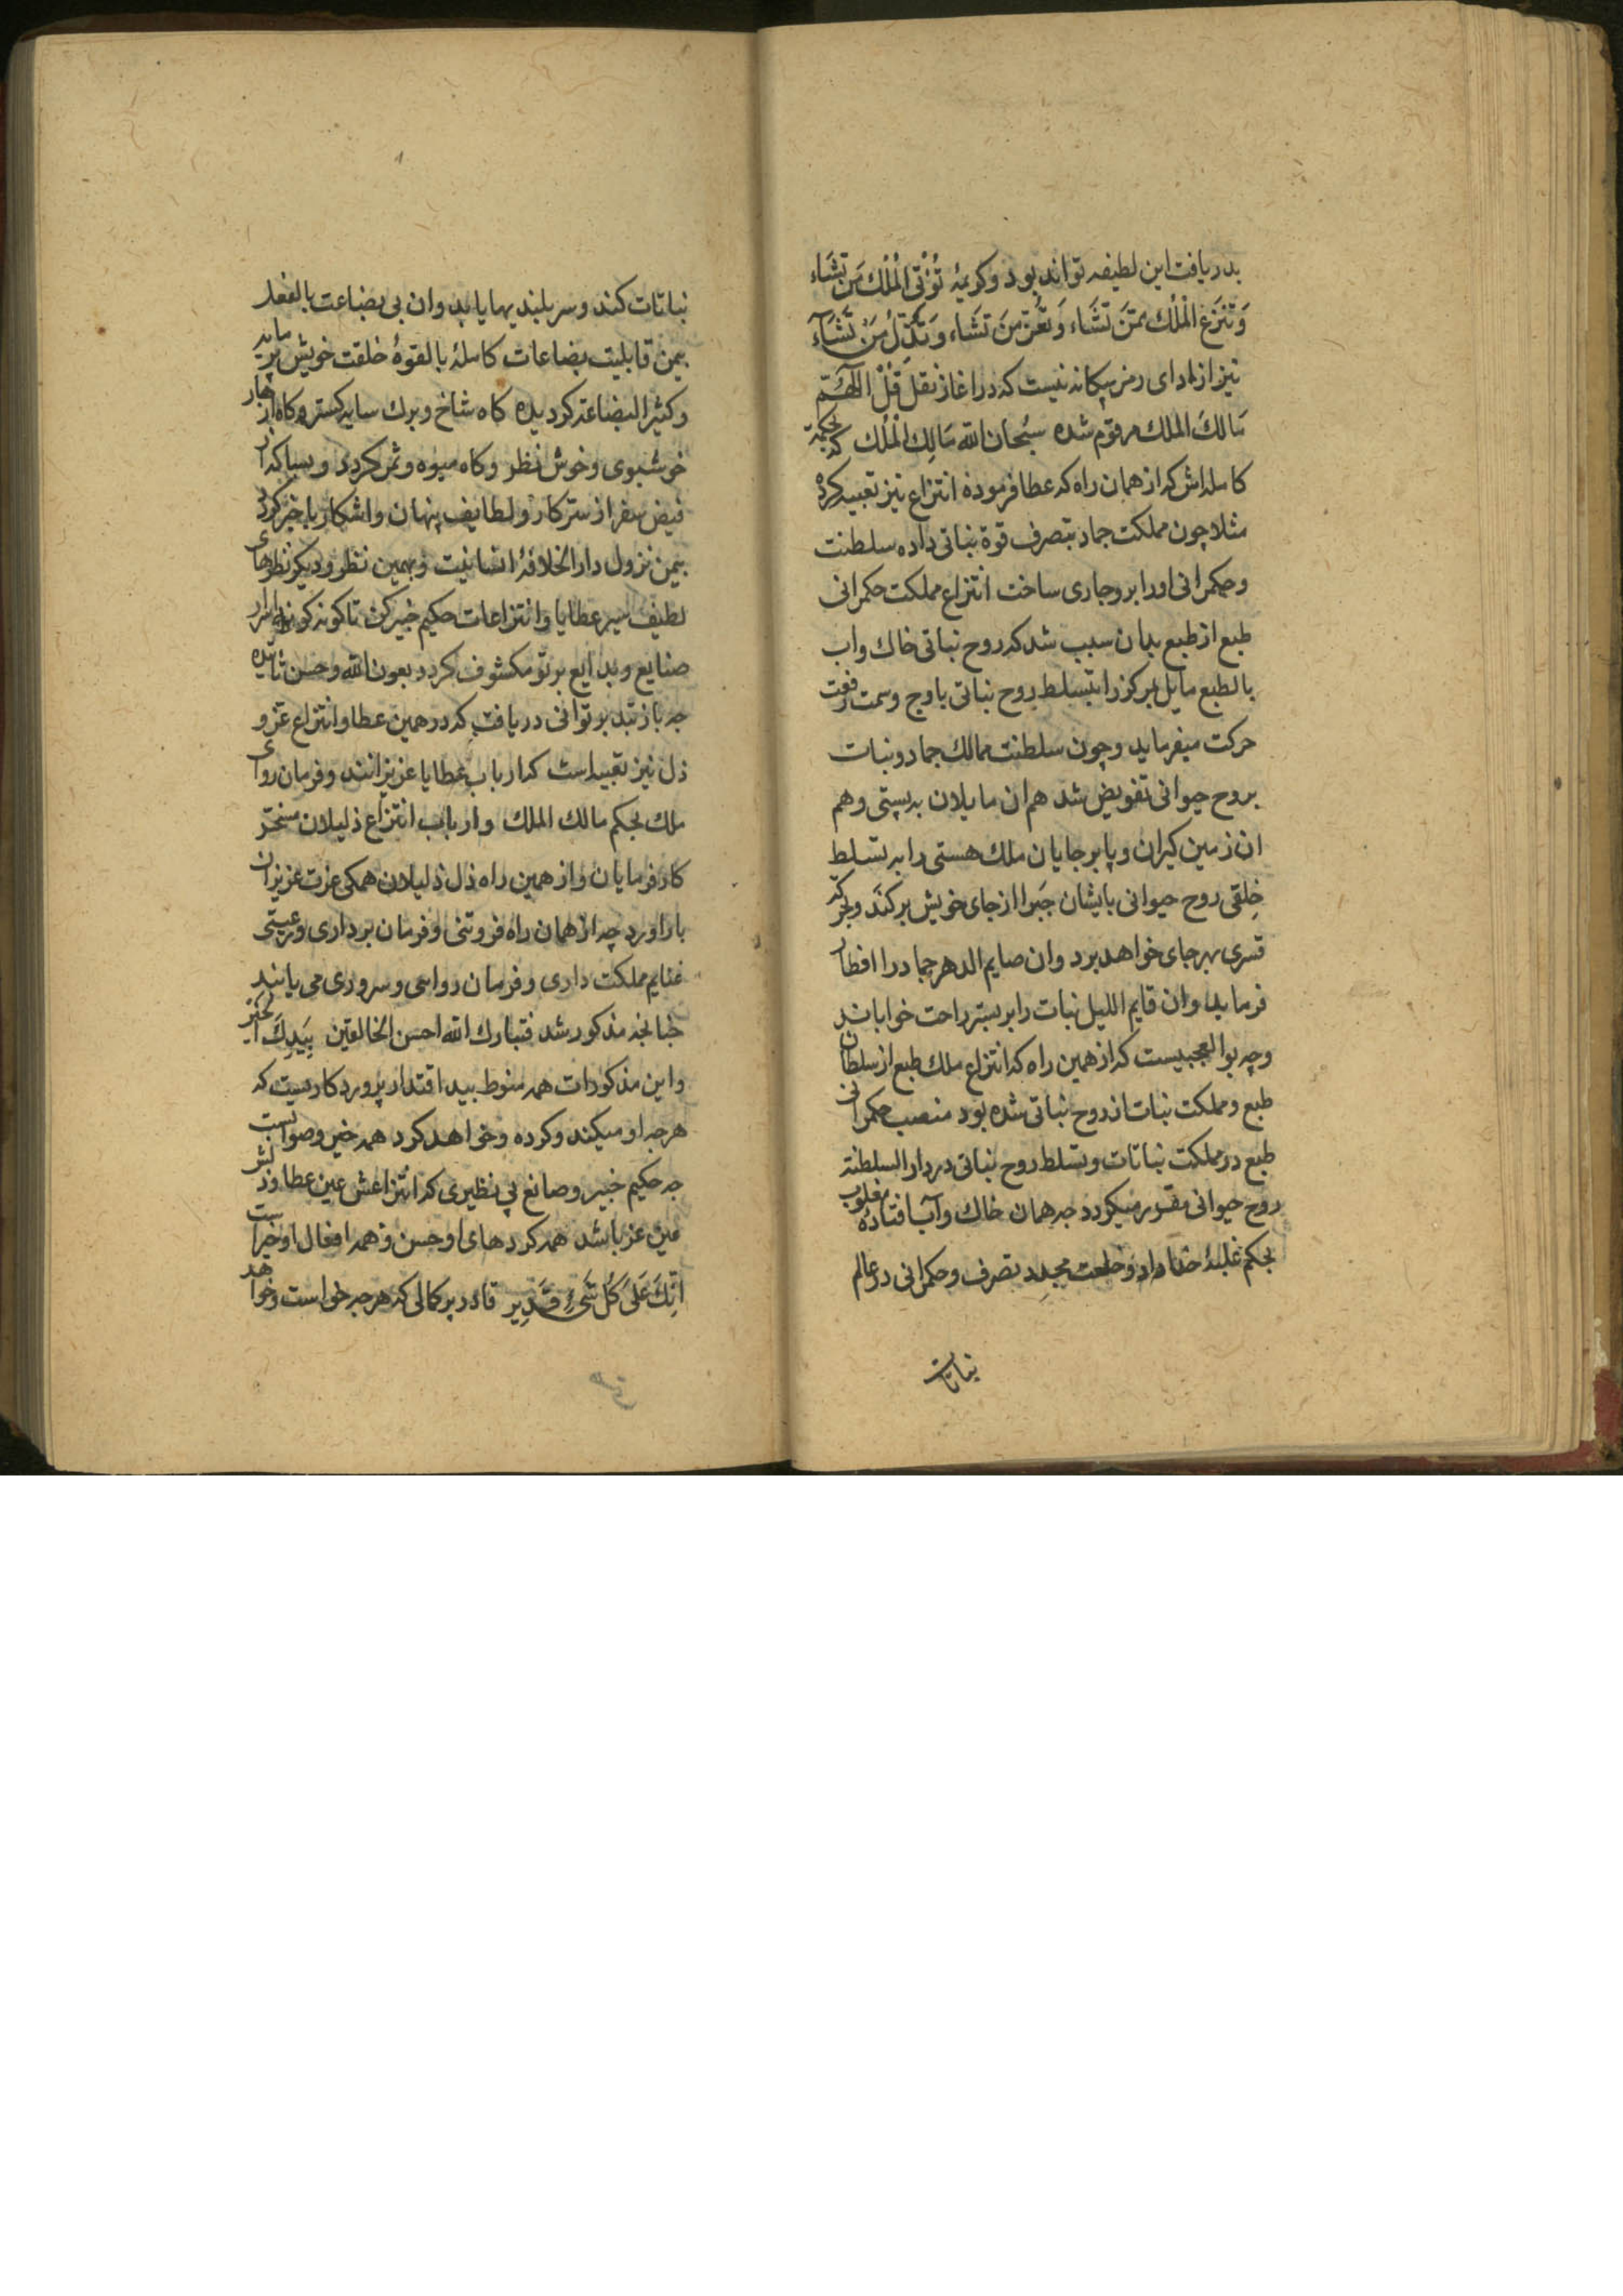 بدریافت این لطیفه تواند بود وکریمهٔ تُؤْتِی الْمُلْكَ مَنْ تَشَاء
وَتَنْزِعُ الْمُلْكَ مِمَّنْ تَشَاء وَتُعِزُّ مَنْ تَشَاء وَتُذِلُّ مَنْ تَشَآء
نیز از ادای رمز بیکانه نیست که در اغاز نقل قُلْ اللَّهُمَّ
مَالكَ الملك مرقوم شده سبُحان الله مَالِك الْمُلك که بحکمة
کامله اش که از همان راه که عطا فرموده انتزاع نیز تعبیه کرده
مثلا چون مملکت جماد بتصرف قوة نباتی داده سلطنت
وحکمرانی اورا برو جاری ساخت انتزاع مملکت حکمرانی
طبع از طبع بدان سبب شد که روح نباتی خاك واب
بالطبع مایل بمرکز را بتسلط روح نباتی باوج وسمت رفعت
حرکت میفرماید وچون سلطنت ممالك جماد ونبات
بروح حیوانی تفویض شد هم ان مایلان به پستی وهم
ان زمین کیران وپابرجایان ملك هستی را به تسلط
خِلقی روح حیوانی بایشان جَبرا از جای خویش برکنَد وبحرکة
قسری بهرجای خواهد برد وان صایم الدهر جماد را افطار
فرماید وان قایم اللیل نبات را بر بستر راحت خواباند
وچه بوالعجبیست که از همین راه که انتزاع ملك طبع از سلطان
طبع ومملکت نبات از روح نباتی شده بود منصب حکمرانی
طبع در مملکت نباتات وتسلط روح نباتی در دار السلطنة
روح حیوانی مقرر میکردد چه همان خاك وآب افتادهٔ مغلوب
بحکم غلبهٔ خدا داد وخلعت مجدِد تصرف وحکمرانی در عالم
نباتات
نباتات کند وسربلندیها یابد وان بی بضاعت بالفعل
بیمن قابلیت بضاعات کاملهٔ بالقوهٔ خلقت خویش پر مایه
وکثیر البضاعة کردیده کاه شاخ وبرك سایه کستر وکاه ازهار
خوشبوی وخوش نظر وکاه میوه وثمر کردد وبسا که از
فیض سفر از سترکار ولطایف پنهان واشکار باخبر کردد
بیمن نزول دار الخلافهٔ انسانیت وبهمین نظر ودیکر نظرهای
لطیف سیر عطایا وانتزاعات حکیم خبیر کن تا کونه کونه اسرار
صنایع وبدایع بر تو مکشوف کردد بعون الله وحسن تائیده
چه باز تدبر توانی دریافت که در همین عطا وانتزاع عز و
ذل نیز تعبیه است که ارباب عطایا عزیزانند وفرمان روای
ملك بحکم مالك الملك وارباب انتزاع ذلیلان مسخر
کارفرمایان واز همین راه ذل ذلیلان همکی عزت عزیزان
بار اورد چه از همان راه فروتنی وفرمان برداری ورعیتی
غنایم مملکت داری وفرمان روایی وسروری می یابند
چنانچه مذکور شد فتبارك الله احسن الخالقین بِیَدِكَ الخَیْر
واین مذکورات همه منوط بید اقتدار پروردکاریست که
هرچه او میکند وکرده وخواهد کرد همه خیر وصوابست
چه حکیم خبیر وصانع بی نظیری که انتزاعش عین عطا وذلش
عین عز باشد همه کردهای او حسن وهمه افعال او خیراست
اِنَّكَ عَلیٰ كُلِّ شَیْءٍ قَدِیر قادر پر کمالی که هرچه خواست وخواهد